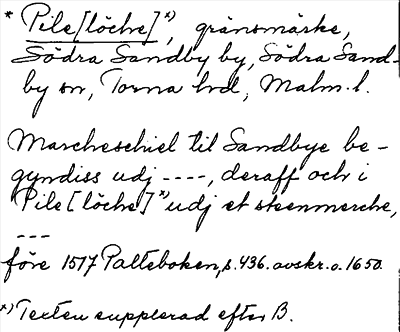 * Pile[löche]*), gränsmärke,
Södra Sandby by, Södra Sand-
by sn, Torna hd, Malm. l.
Marcheschiel til Sandbye be-
gyndiss udj ----, deraff och i
Pile[löche]*) udj et steenmerche,
---
före 1517 Palteboken, s. 436. avskr. o. 1650.
*) Texten supplerad efter B.